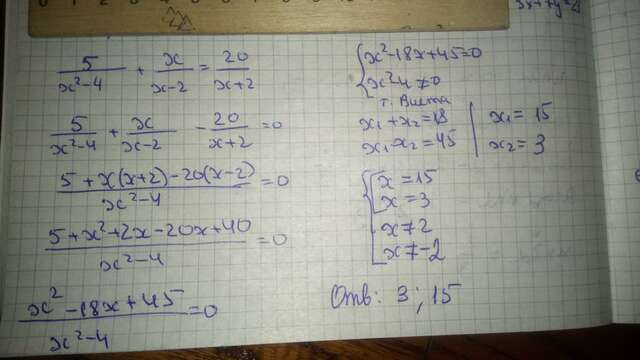 5/(x²-4) + x/(x-2) = 20/(x+2)
5/(x²-4) + x/(x-2) - 20/(x+2) = 0
(5+x(x+2)-20(x-2))/(x²-4) = 0
(5+x²+2x-20x+40)/(x²-4) = 0
(x²-18x+45)/(x²-4) = 0
{x²-18x+45=0
x²-4≠0
т. Виета
x₁+x₂=18 | x₁=15
x₁·x₂=45 | x₂=3
{x=15
x=3
[x≠2
x≠-2
Отв: 3; 15